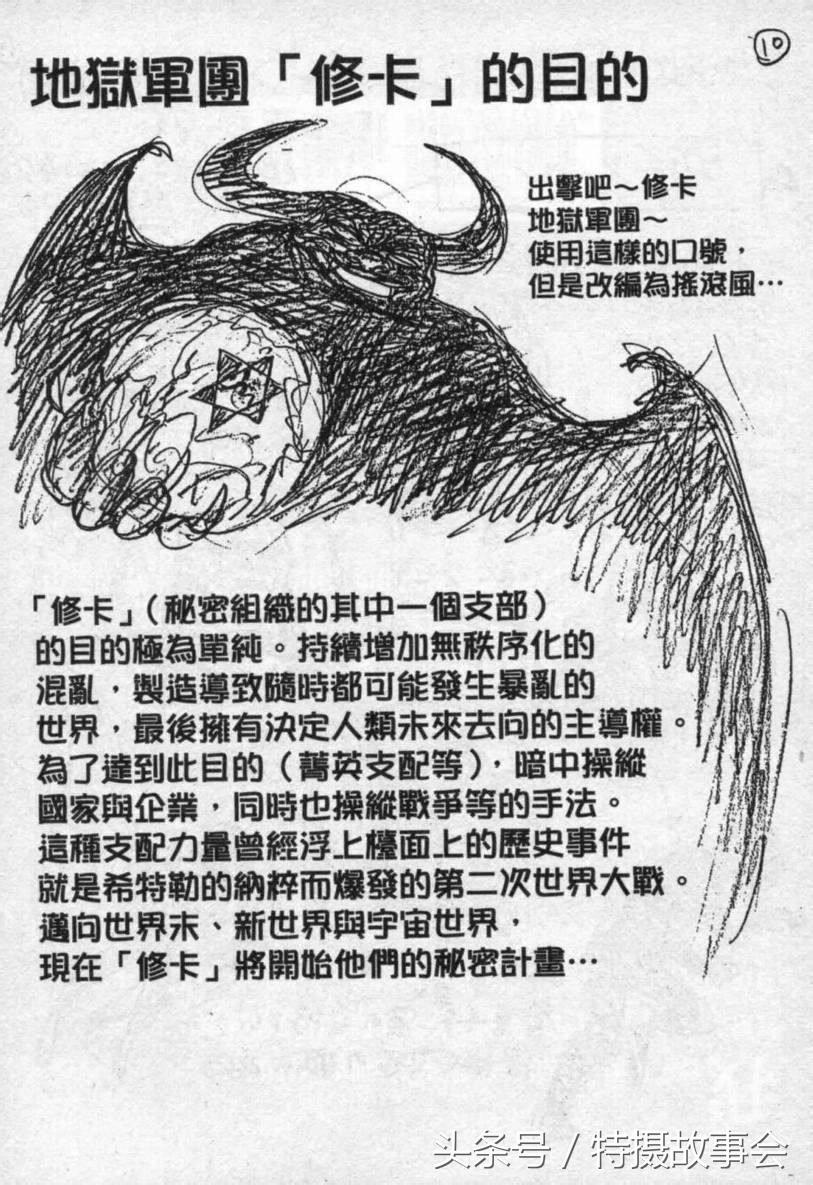 10
地獄軍團「修卡」的目的
出擊吧～修卡
地獄軍團～
使用這樣的口號，
但是改編為搖滾風…
「修卡」（秘密組織的其中一個支部）
的目的極為單純。持續增加無秩序化的
混亂，製造導致隨時都可能發生暴亂的
世界，最後擁有決定人類未來去向的主導權。
為了達到此目的（菁英支配等），暗中操縱
國家與企業，同時也操縱戰爭等的手法。
這種支配力量曾經浮上檯面上的歷史事件
就是希特勒的納粹而爆發的第二次世界大戰。
邁向世界末、新世界與宇宙世界，
現在「修卡」將開始他們的秘密計畫…
头条号 / 特摄故事会